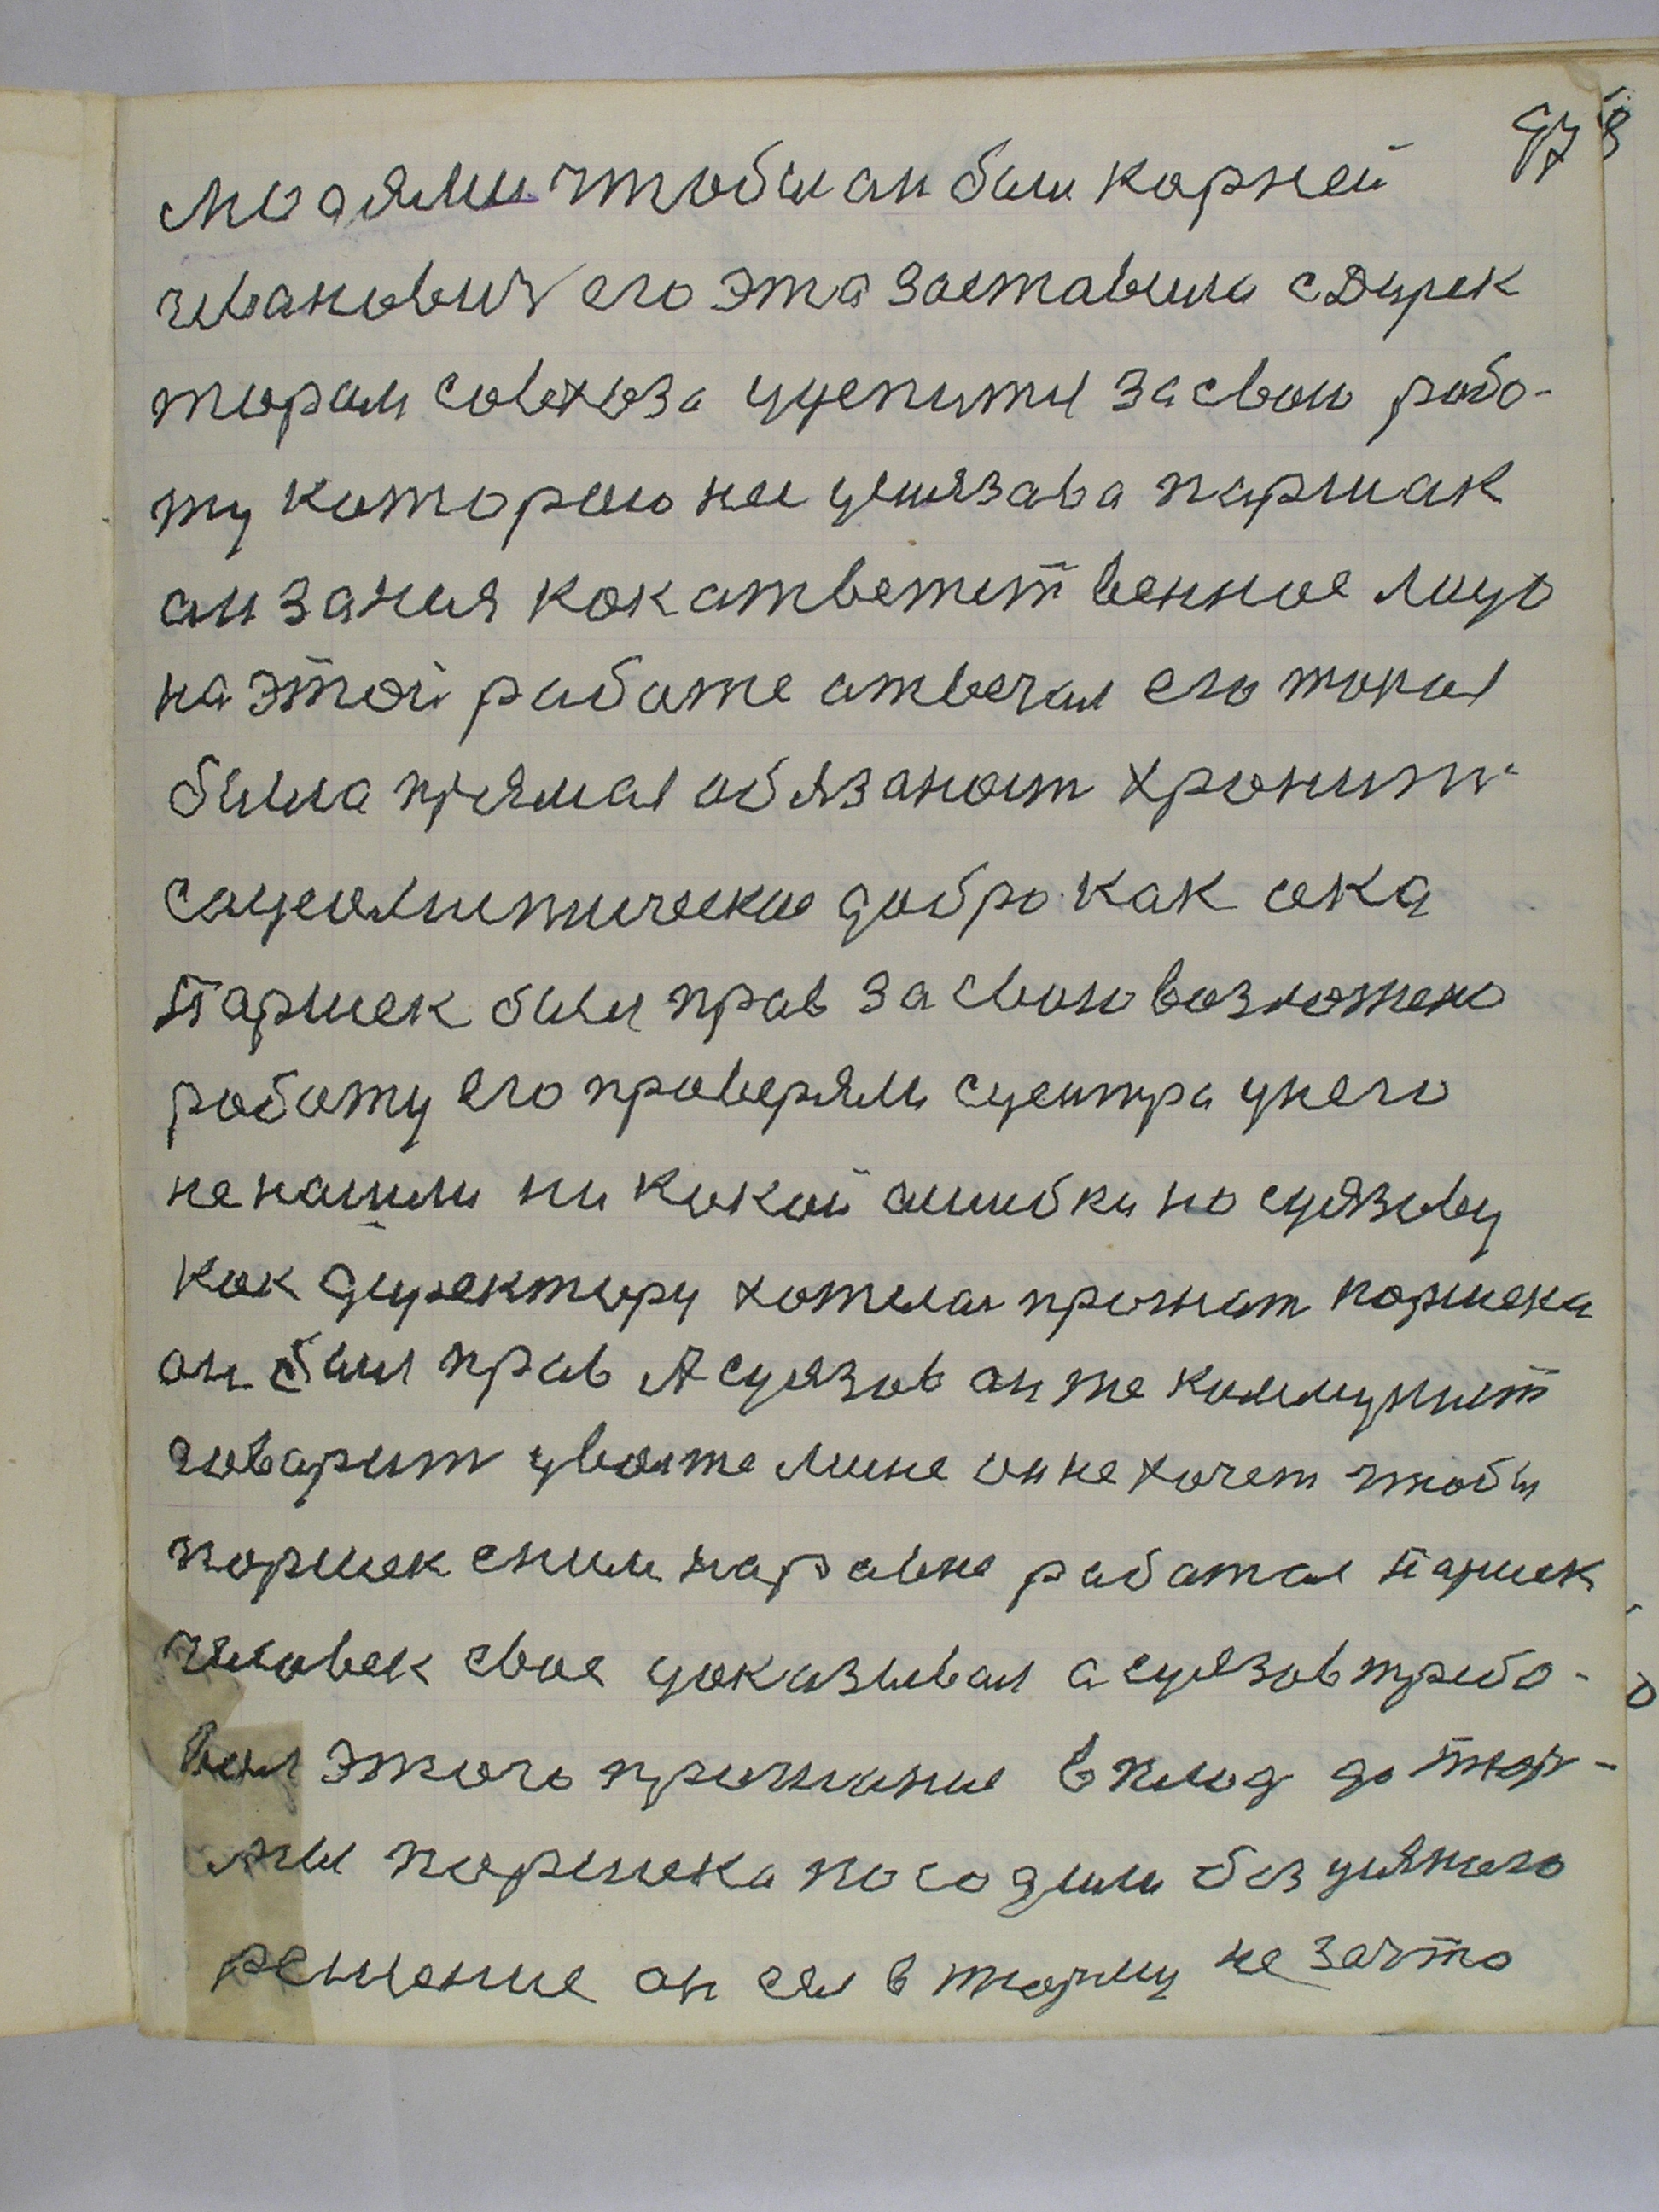 973
молями чтобы он был корней
иванович его эта заставила сдирек
тором совхоза уцепится засвою рабо-
ту которою не унязава паршак
он зания как атветст венное лицо
на этой работе атвечал его токая
была прямая обязаност хронить
сацеолистическое добро как ока
Паршек был прав за свою возложено
работу его проверяли сцентра унего
ненашли ни какой ошибки но суязову
как директору хотелас прожат поршека
он был прав А суязов он же коммунист
говарит увольте мине он не хочет чтобы
поршек сним наравне работал паршек
человек свое доказывал а суязов требо-
вал этого прижание вклад до тюр-
мы поршека посодили без уянного
решение он сел в тюрму не зачто